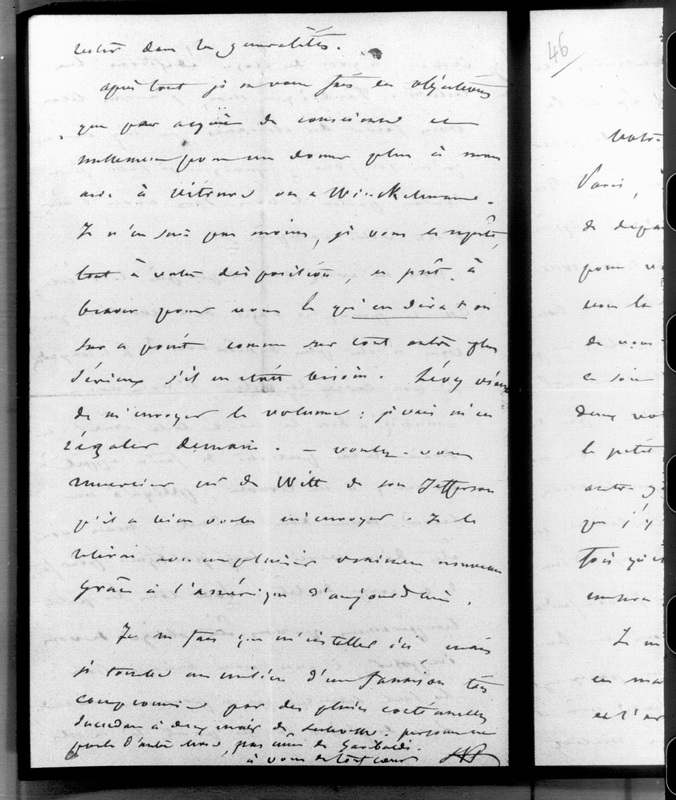 rester dans les généralités.
après tout je ne vous fais ces objections
que par acquis de conscience et
nullement pour me donner plus à mon
aise à Winckelmann.
Je n'en suis pas moins, je vous le répète,
tout à votre disposition, et prêt à
braver pour vous le qu'en dira-t-on
sur ce point comme sur tout autre plus
sérieux s'il en était besoin. Lévy vient
de m'envoyer le volume : je vais m'en
régaler demain. – voulez-vous
remercier de Witt de son Jefferson
qu'il a bien voulu m'envoyer. Je le
relirai avec un plaisir vraiment nouveau
grâce à l'Amérique d'aujourd'hui.
Je ne fais que m'installer ici mais
je tombe au milieu d'une fanaison très
compromise par des pluies continuelles
succédant à deux mois de sécheresse. personne ne
parle d'autre chose, pas même de Garibaldi.
à vous de tout coeur
46
votre
Paris,
de
pour
vous la
de vous
ce soir
deux
le petit
autre
que j'y
fois qu'
encore
Je